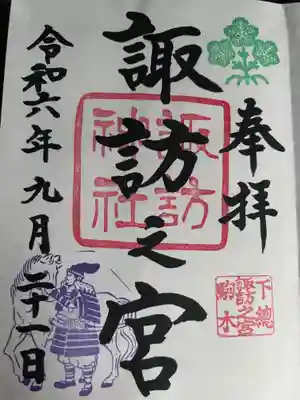 奉拝
諏訪之宮
諏訪
神社
下総
諏訪之宮
駒木
令和六年九月二十一日